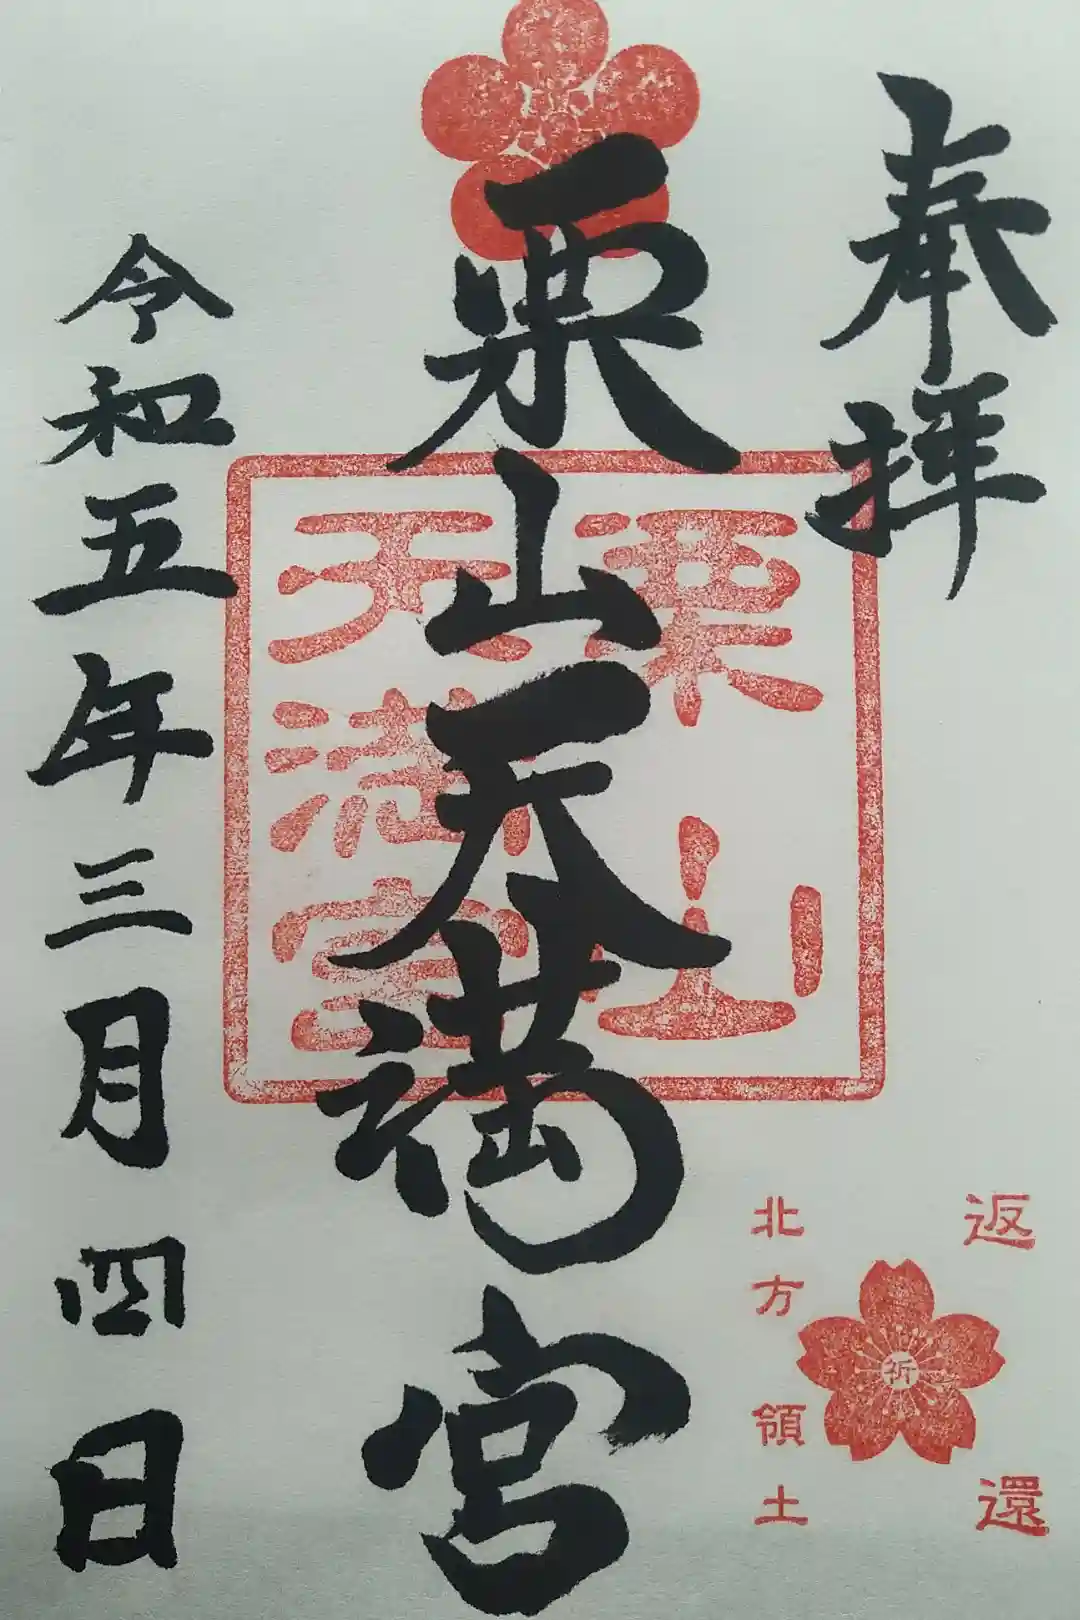 奉拝
栗山天満宮
栗山
天満宮
令和五年三月四日
返還
祈
北方領土